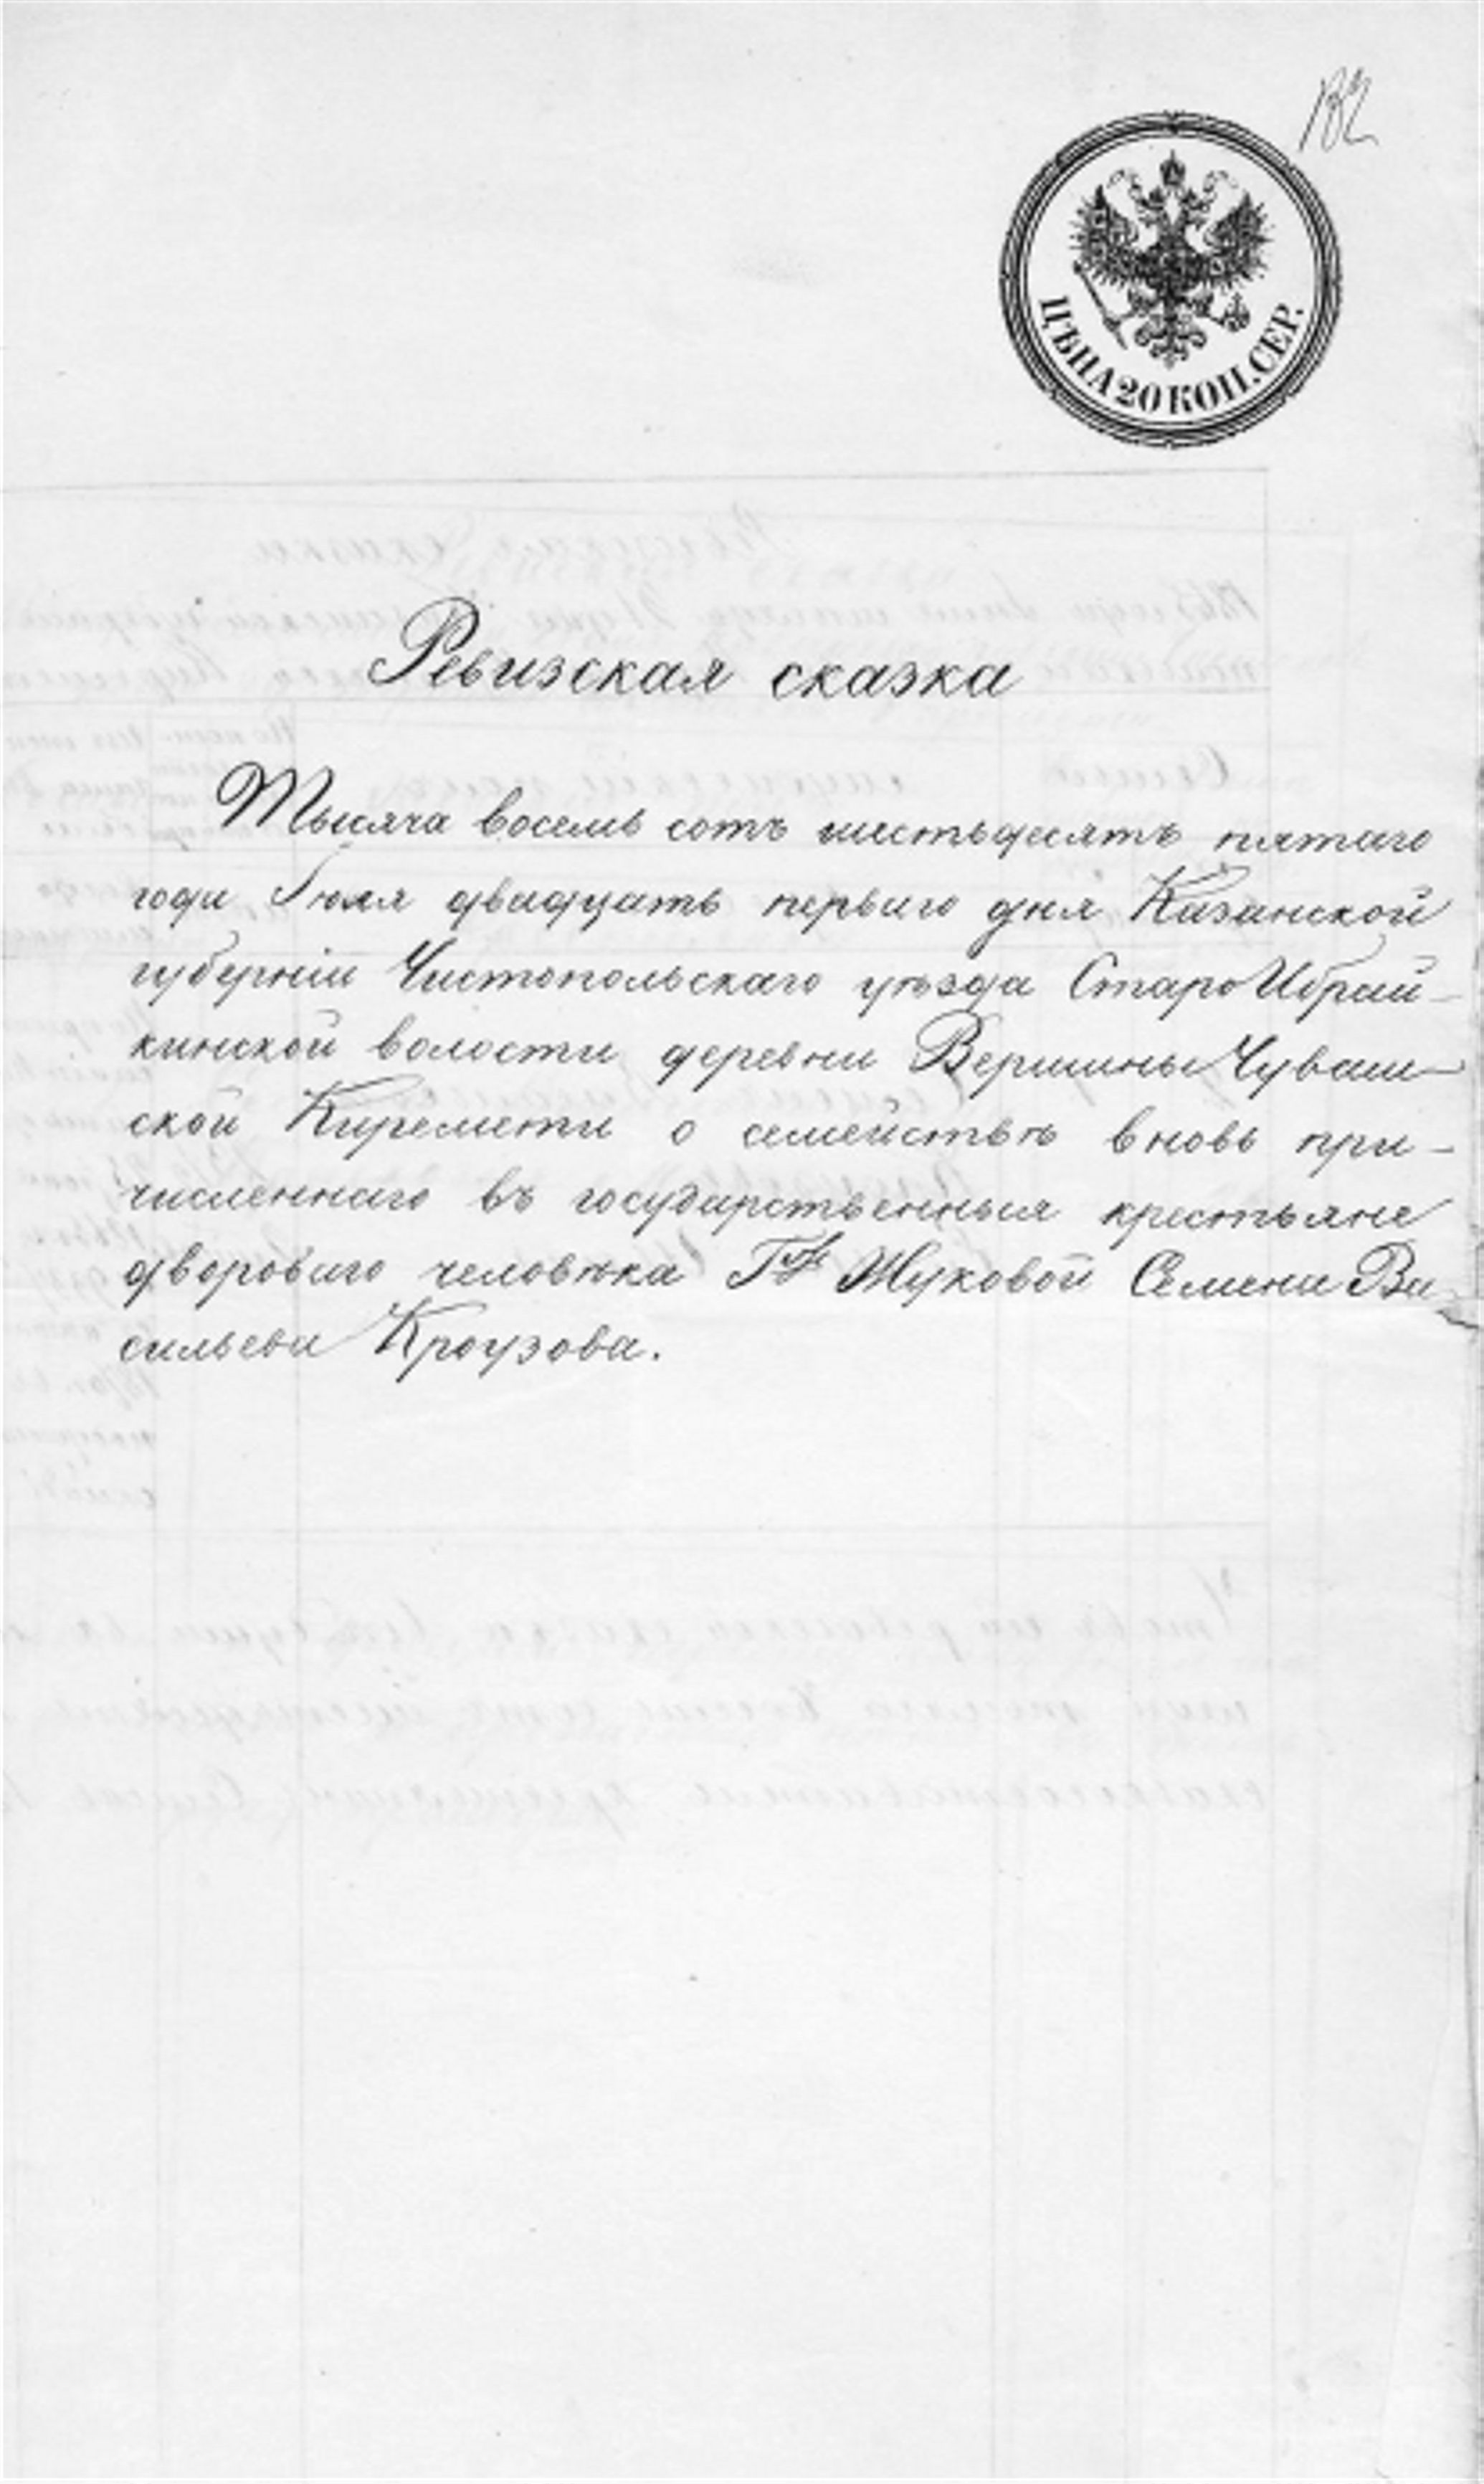 ЦѢНА 20 КОП. СЕР.
Ревизская сказка
Тысяча восемь сотъ шестьдесятъ пятаго
года Іюля двадцать перваго дня Казанской
губерніи Чистопольскаго уѣзда Старо Ибрай-
кинской волости деревни Вершины Чуваш-
ской Киремети о семействѣ вновь при-
численнаго въ государственныя крестьяне
двороваго человѣка Г-жи Жуковой Семена Ва-
сильева Кроузова.